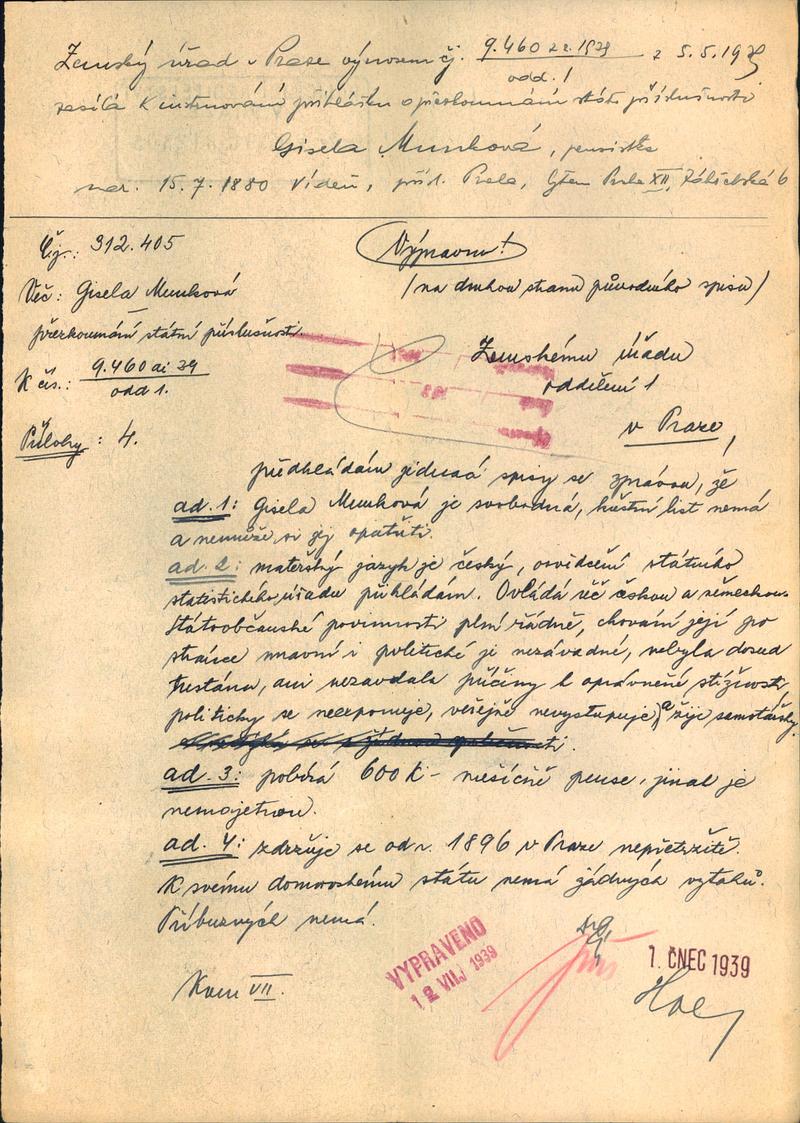 Zemský úřad v Praze výnosem čj. 9.460 z r. 1939 odd. 1 z 5.5.1939
zasílá k instruování přihlášku o přezkoumání stát. příslušnosti
Gisela Munková, pensistka
nar. 15.7.1880 Vídeň, přísl. Praha, bytem Praha XII,
Čj.: 312.405
Výpravna!
Věc: Gisela Munková
(na druhou stranu původního spisu)
přezkoumání státní příslušnosti
Zemskému úřadu
K čís.: 9.460 ai 39
odd 1.
oddělení 1
Přílohy: 4.
v Praze,
předkládám jednací spisy se zprávou, že
ad. 1: Gisela Munková je svobodná, křestní list nemá
a nemůže si jej opatřiti.
ad 2: mateřský jazyk je český, osvědčení státního
statistického úřadu přikládám. Ovládá řeč českou a německou.
Státoobčanské povinnosti plní řádně, chování její po
stránce mravní i politické je nezávadné, nebyla dosud
trestána, ani nezavdala příčiny k oprávněné stížnosti,
politicky se neexponuje, veřejně nevystupuje a žije samotářsky.
ad 3: pobírá 600 K- měsíčně pense, jinak je
nemajetnou.
ad. 4: zdržuje se od r. 1896 v Praze nepřetržitě.
K svému domovskému státu nemá žádných vztahů.
Příbuzných nemá.
VYPRAVENO
12 VII 1939
1. ČNEC 1939
VII.